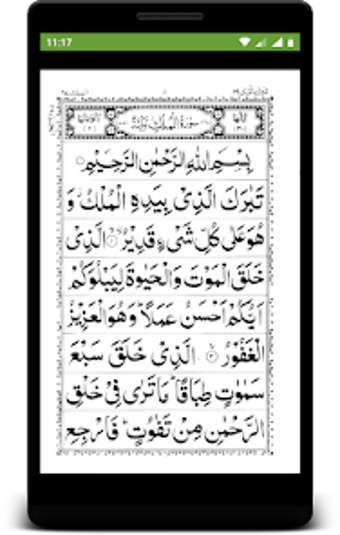 11:17
سُوْرَةُ الْمُلْكِ
بِسْمِ اللّٰهِ الرَّحْمٰنِ الرَّحِيْمِ
تَبٰرَكَ الَّذِیْ بِیَدِهِ الْمُلْكُ وَ
هُوَ عَلٰی كُلِّ شَیْءٍ قَدِیْرُ ۙ﴿۱﴾ الَّذِیْ
خَلَقَ الْمَوْتَ وَ الْحَیٰوةَ لِیَبْلُوَكُمْ
اَیُّكُمْ اَحْسَنُ عَمَلًا ؕ وَ هُوَ الْعَزِیْزُ
الْغَفُوْرُ ۙ﴿۲﴾ الَّذِیْ خَلَقَ سَبْعَ
سَمٰوٰتٍ طِبَاقًا ؕ مَا تَرٰی فِیْ خَلْقِ
الرَّحْمٰنِ مِنْ تَفٰوُتٍ ؕ فَارْجِعِ